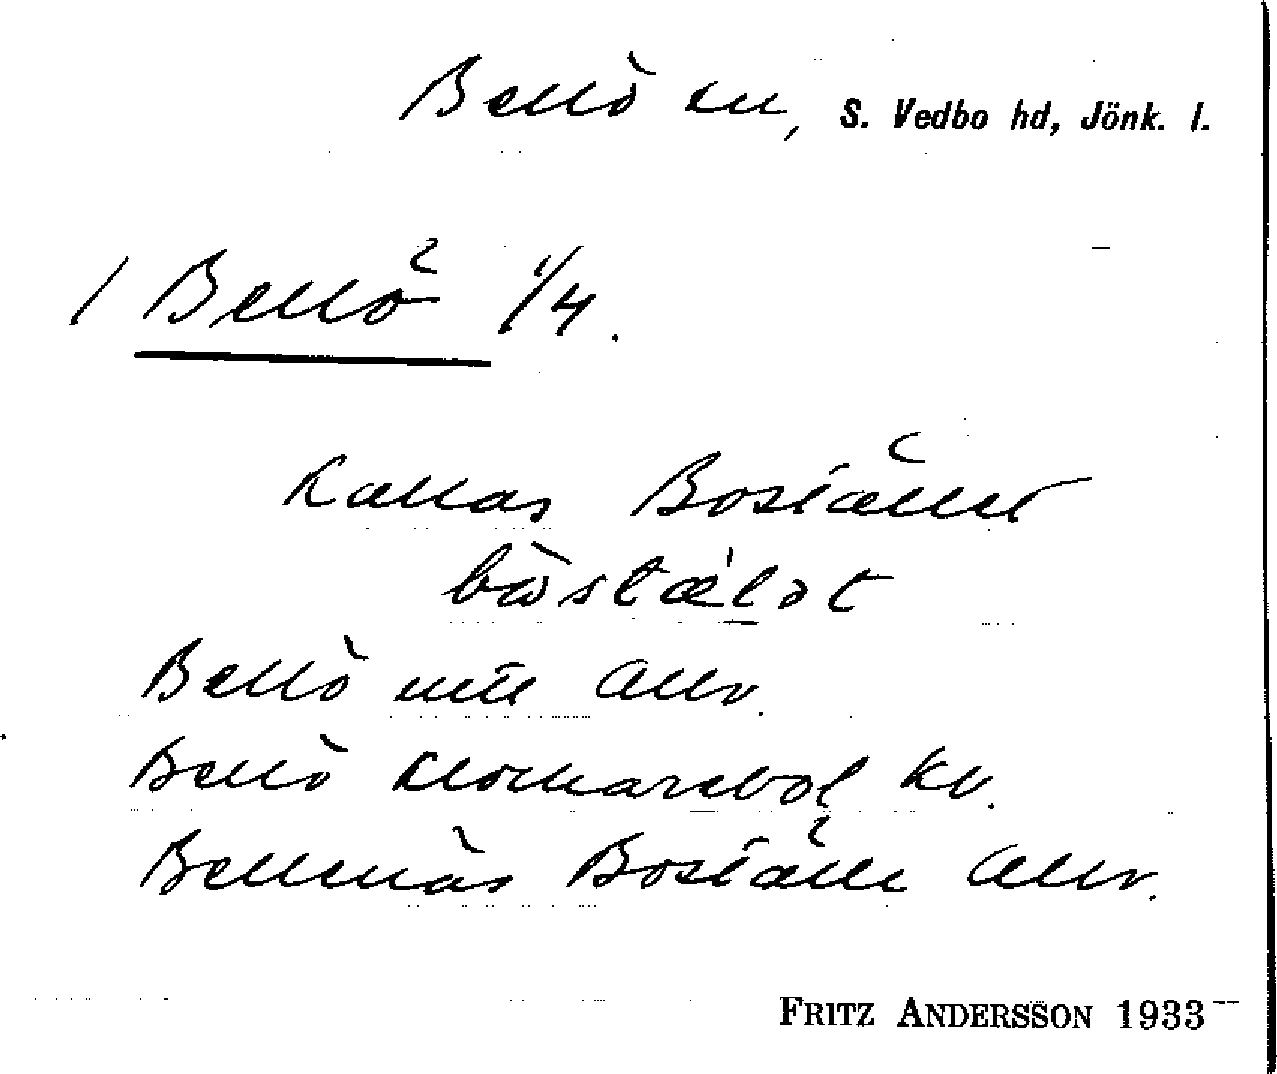 Bellö sn, S. Vedbo hd, Jönk. l.
1 Bellö 1/4.
Kallas Bostället
bo̊stælət
Bellö
Bellö Klockarebol kv.
Bellenäs Boställe
FRITZ ANDERSSON 1933